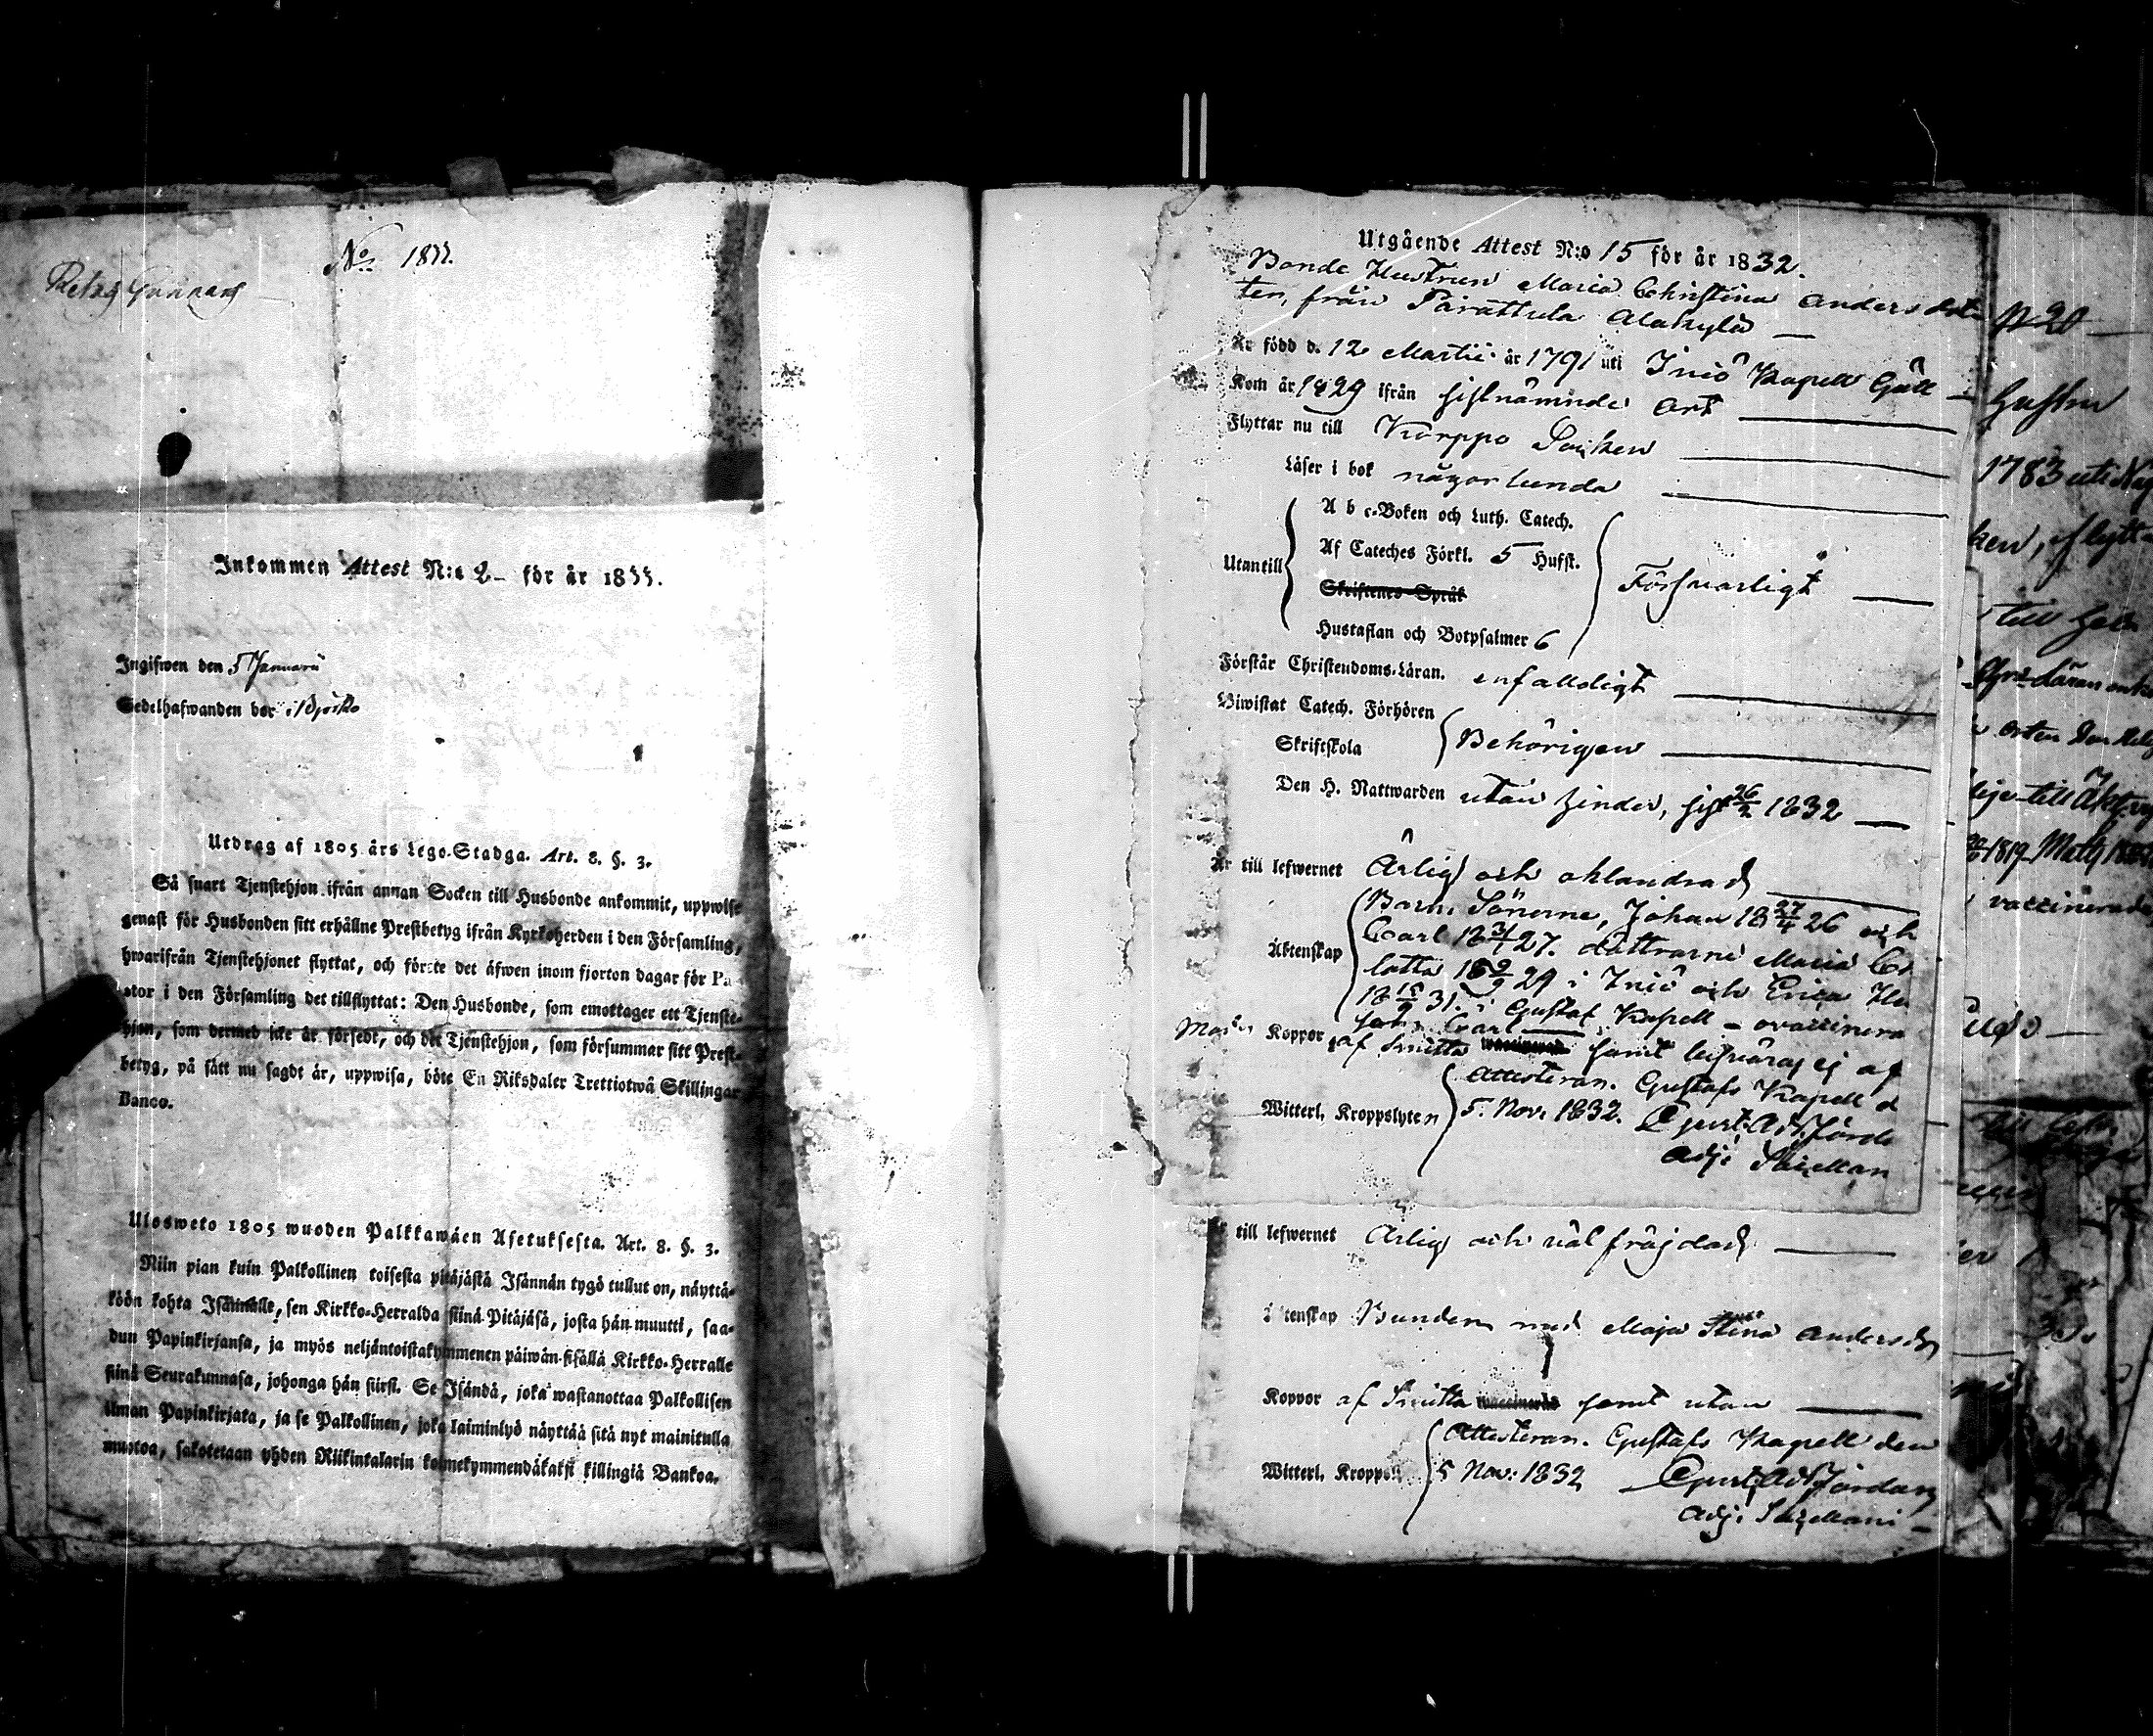 No 1833.
Inkommen Attest N:o 2 – för år 1833.
Ingifwen den 5 Januarii
Sedelhafwanden bor i Björkö
Utdrag af 1805 års Lego-Stadga. Art. 8. §. 3.
Så snart Tjenstehjon ifrån annan Socken till Husbonde ankommit, uppwise
genast för Husbonden sitt erhållne Prestbetyg ifrån Kyrkoherden i den Församling,
hwarifrån Tjenstehjonet flyttat, och förete det äfwen inom fjorton dagar för Pa-
stor i den Församling det tillflyttat: Den Husbonde, som emottager ett Tjenste-
hjon, som dermed icke är försedt, och det Tjenstehjon, som försummar sitt Prest-
betyg, på sätt nu sagdt är, uppwisa, böte En Riksdaler Trettiotwå Skillingar
Banco.
Ulosweto 1805 wuoden Palkkawäen Asetuksesta. Art. 8. §. 3.
Niin pian kuin Palkollinen toisesta pitäjästä Isännän tygö tullut on, näyttä-
köön kohta Isännälle, sen Kirkko-Herralda siinä Pitäjäsä, josta hän muutti, saa-
dun Papinkirjansa, ja myös neljäntoistakymmenen päiwän sisällä Kirkko-Herralle
siinä Seurakunnasa, johonga hän siirsi. Se Isändä, joka wastanottaa Palkollisen
ilman Papinkirjata, ja se Palkollinen, joka laiminlyö näyttää sitä nyt mainitulla
muotoa, sakotetaan yhden Riikintalarin kolmekymmendäkaksi killingiä Bankoa.
Utgående Attest N:o 15 för år 1832.
Bonde Hustrun Maria Christina Anders dot-
ter, från Parattula Alakylä
Är född d. 12 Martii år 1791 uti Iniö Kapell Gäll
Kom år 1829 ifrån sistnämnde ort
Flyttar nu till Korppo Socken
Läser i bok någorlunda
A b c-Boken och Luth. Catech.
Af Cateches Förkl. 5 Hufst.
Utantill Försvarligt
Skriftenes Språk
Hustaflan och Botpsalmer 6
Förstår Christendoms-Läran. enfalldigt
Biwistat Catech. Förhören
Skriftskola Behörigen
Den H. Nattwarden utan hinder, sist 26/2 1832
Är till lefwernet Ärlig och oklandrad
Äktenskap Barn: Sönerne, Johan 18 27/4 26 och
Carl 18 27. döttrarne Maria
lotta 18 29 i Iniö och Erica
18 31 i Gustaf Kapell – ovaccinera
Koppor af Smitta vaccinerad samt
Attesteran. Gustafs Kapell d
Witterl. Kroppslyten 5. Nov. 1832.
Adj:
till lefwernet Ärlig och väl fräjdad
Äktenskap Bunden med Maja Stina Andersdr
Koppor af Smitta vaccinerad samt utan
Attesteran. Gustafs Kapell den
Witterl. Kroppsl 5 Nov: 1832
Adj.
N 20
Hustru
1783 uti Nag
ken, flytt-
till
Chr-Läran
orten
1819
vaccinerade